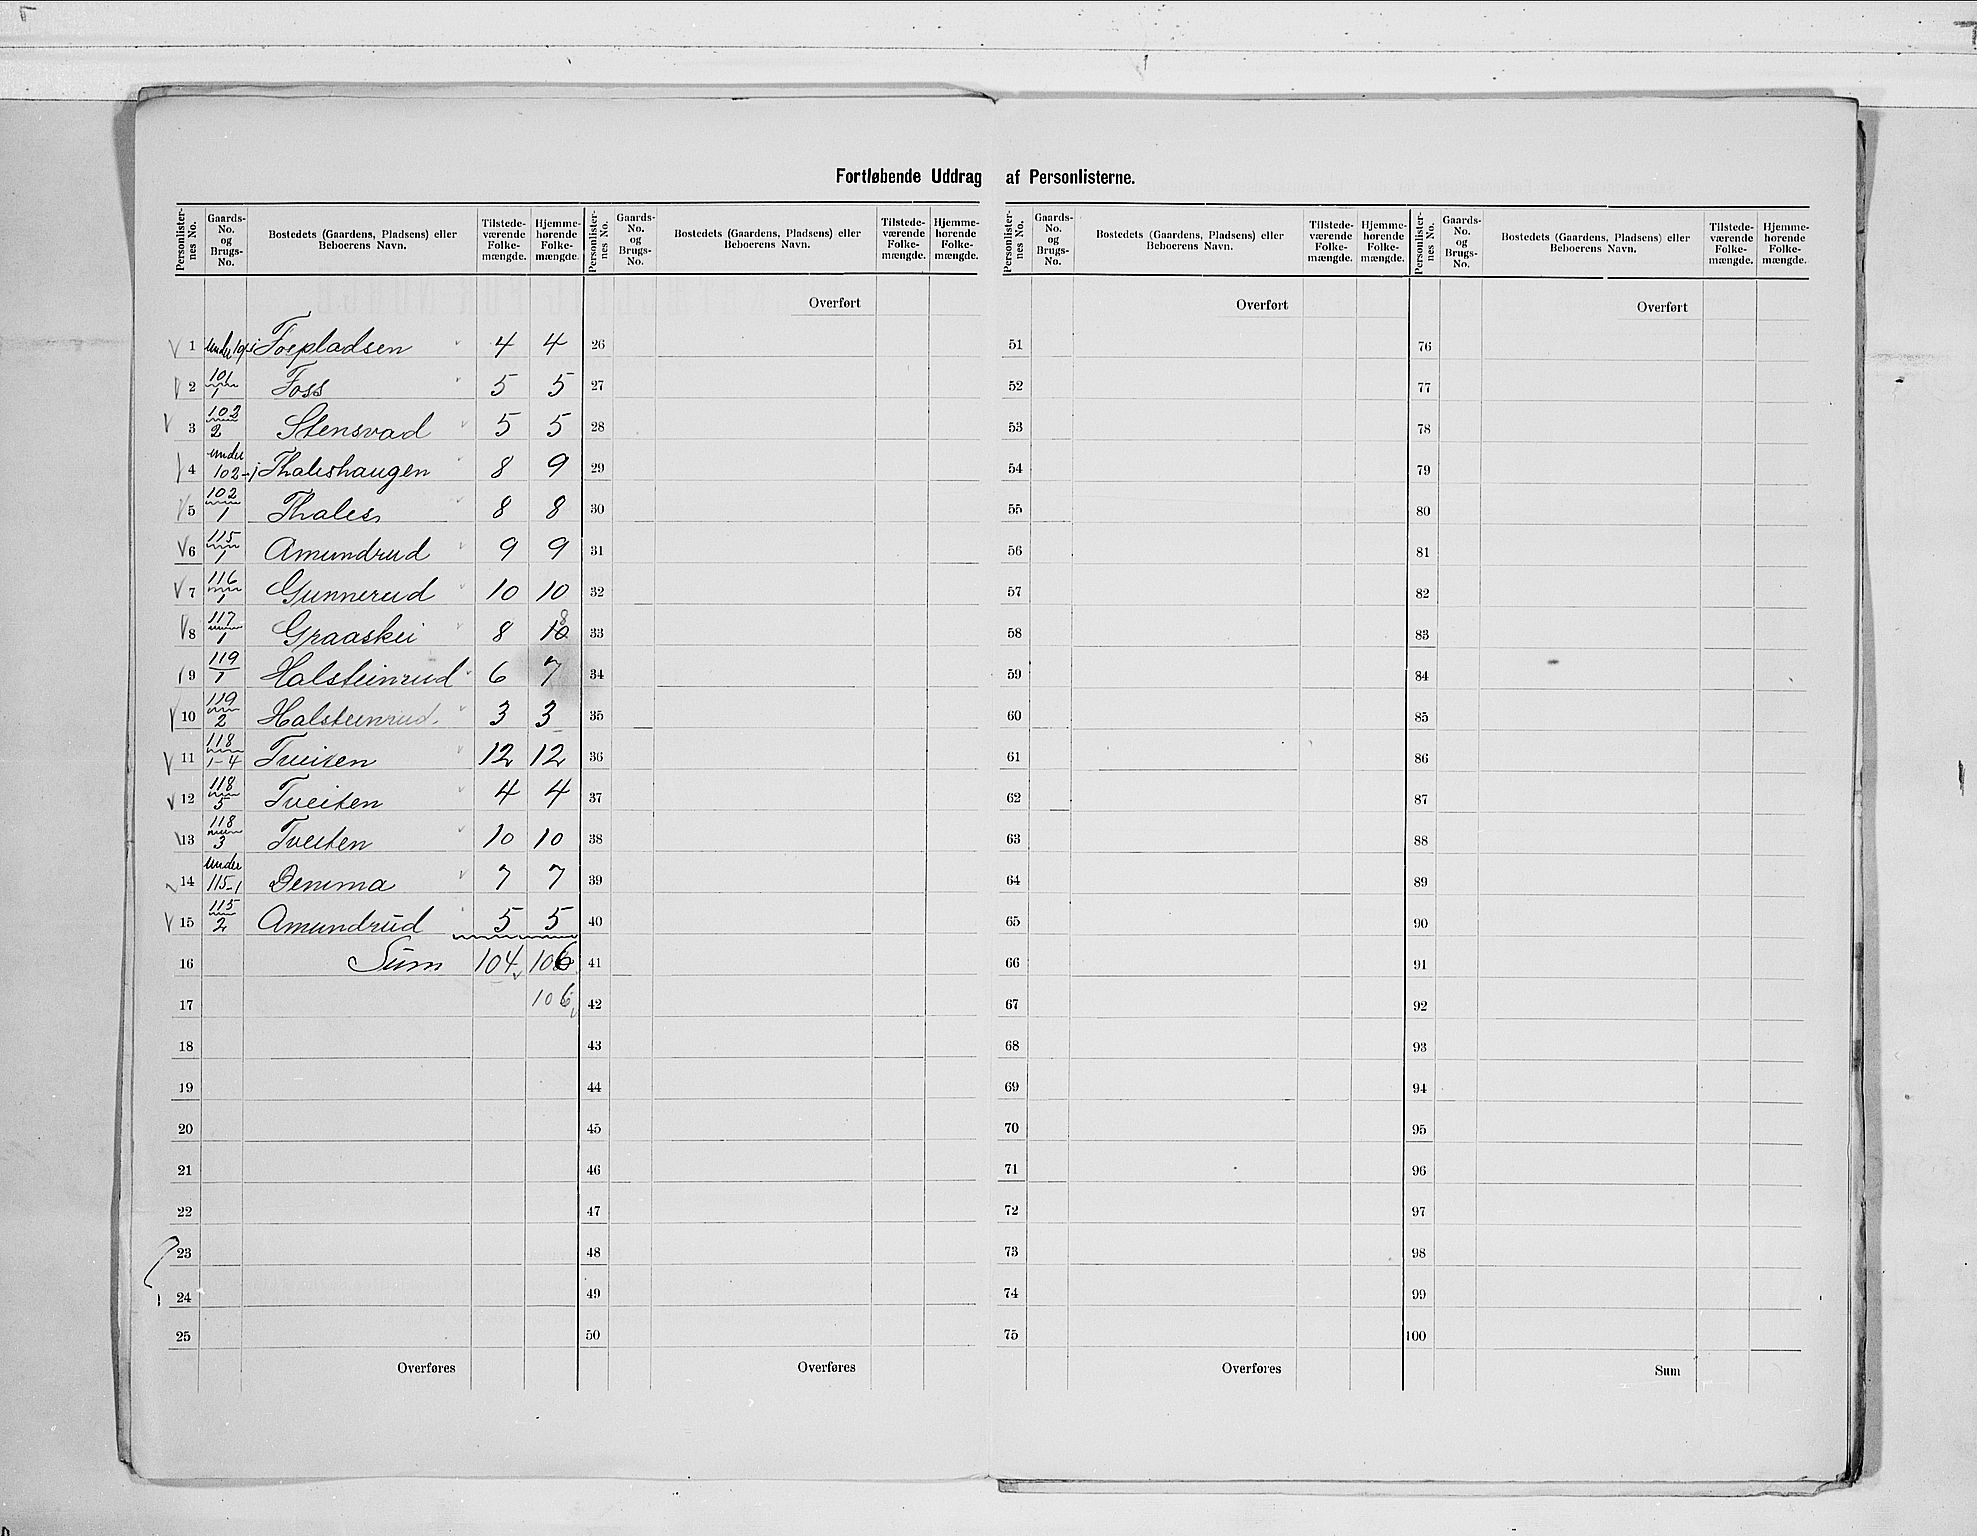 Fortløbende Uddrag af Personlisterne.
Personlister-nes No. | Gaards-No. og Brugs-No. | Bostedets (Gaardens, Pladsens) eller Beboerens Navn. | Tilstede-værende Folke-mængde. | Hjemme-hørende Folke-mængde.
Personlister-nes No. | Gaards-No. og Brugs-No. | Bostedets (Gaardens, Pladsens) eller Beboerens Navn. | Tilstede-værende Folke-mængde. | Hjemme-hørende Folke-mængde.
Personlister-nes No. | Gaards-No. og Brugs-No. | Bostedets (Gaardens, Pladsens) eller Beboerens Navn. | Tilstede-værende Folke-mængde. | Hjemme-hørende Folke-mængde.
Personlister-nes No. | Gaards-No. og Brugs-No. | Bostedets (Gaardens, Pladsens) eller Beboerens Navn. | Tilstede-værende Folke-mængde. | Hjemme-hørende Folke-mængde.
Overført Overført Overført
1 under Foepladsen 4 4 26 51 76
2 101/1 Foss 5 5 27 52 77
3 102/2 Stensvad 5 5 28 53 78
4 under 102-1 Thaleshaugen 8 9 29 54 79
5 102/1 Thales 8 8 30 55 80
6 115/1 Amundrud 9 9 31 56 81
7 116/1 Gunnerud 10 10 32 57 82
8 117/1 Graaskei 8 10 8 33 58 83
9 119/1 Halsteinrud 6 7 34 59 84
10 119/2 Halsteinrud. 3 3 35 60 85
11 118/1-4 Tveiten 12 12 36 61 86
12 118/5 Tveiten 4 4 37 62 87
13 118/3 Tveiten 10 10 38 63 88
14 under 115-1 Demma 7 7 39 64 89
15 115/2 Amundrud 5 5 40 65 90
16 Sum 104 106 41 66 91
17 106 42 67 92
18 43 68 93
19 44 69 94
20 45 70 95
21 46 71 96
22 47 72 97
23 48 73 98
24 49 74 99
25 50 75 100
Overføres Overføres Overføres Sum